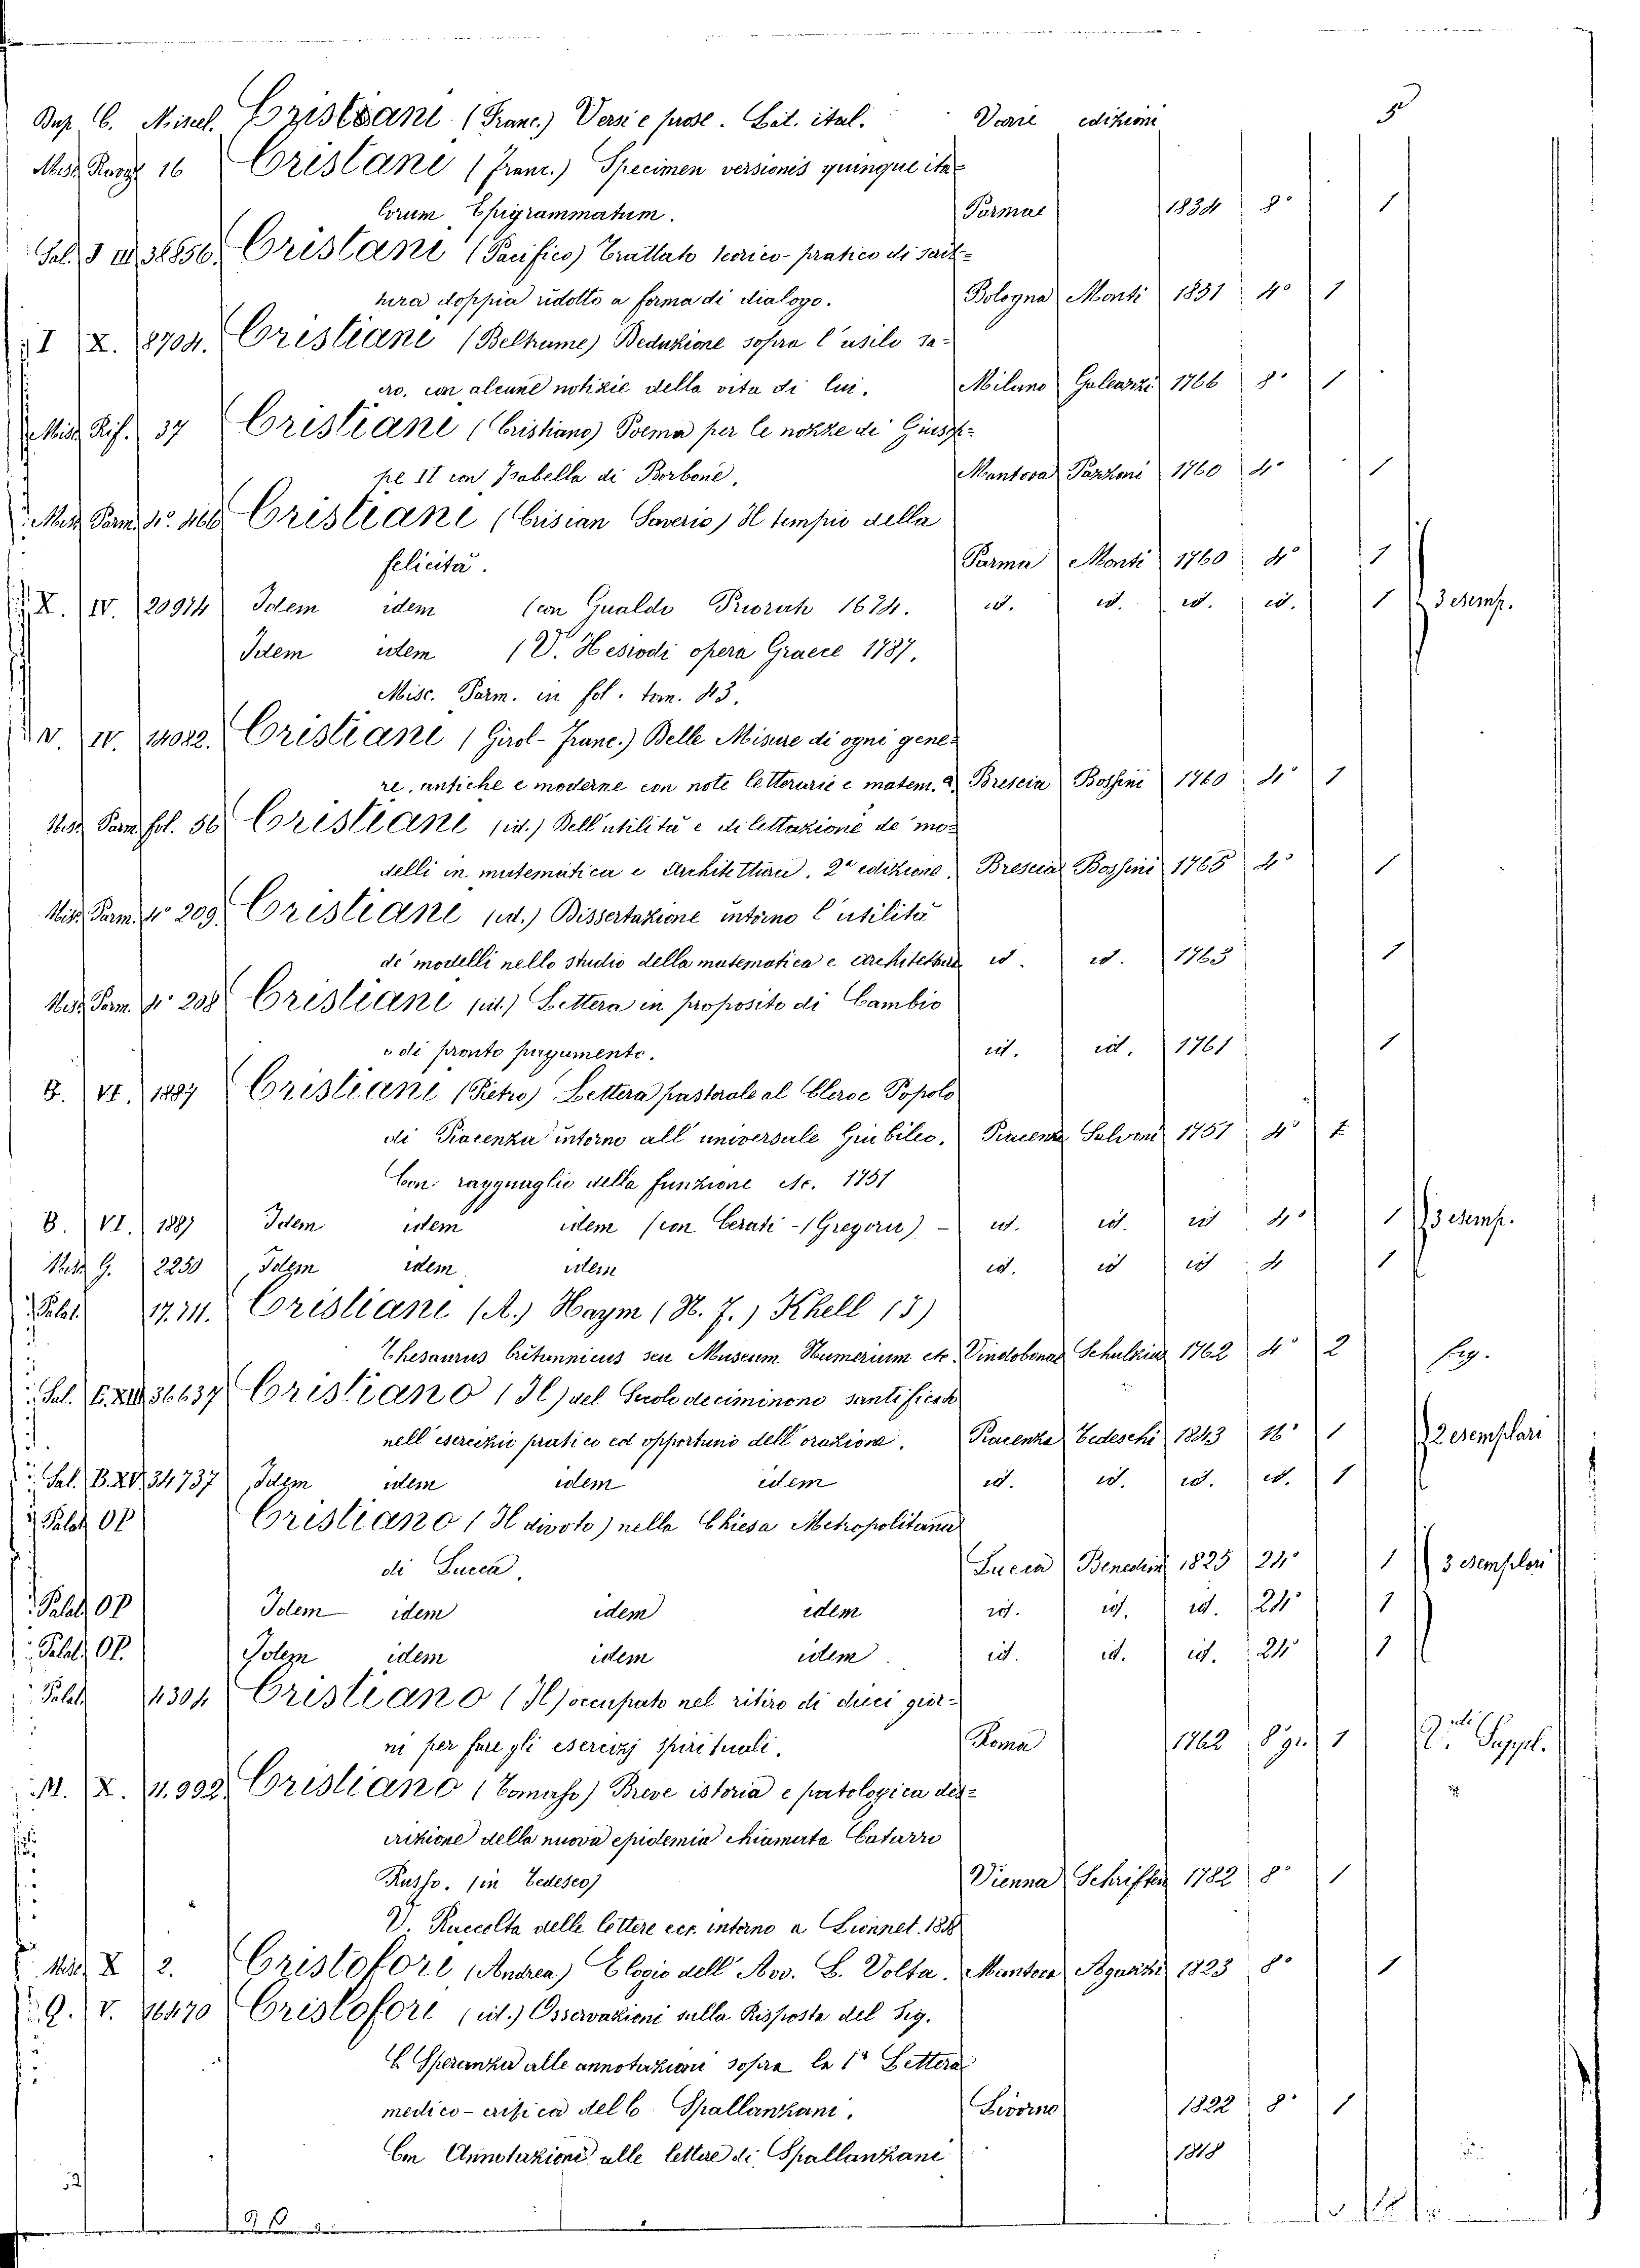 B. Miscel. Cristiani (Franc.) Versi e prose. Lit. ital. Varie edizioni 5
Misc. 16 Cristiani (Franc.) Specimen versionis quinque ita-
lorum Epigrammatum. Parmae 1834 8° 1
Sal. I III 38856. Cristani (Pacifico) Trattato teorico-pratico di
tura doppia ridotto a forma di dialogo. Bologna Monti 1851 4° 1
I X. 8704. Cristiani (Beltrame) Deduzione sopra l'asilo sa-
cro, con alcune notizie della vita di lui. Milano Galeazzi 1766 8° 1
Misc. Rif. 37 Cristiani (Cristiano) Poema per le nozze di Giusep-
pe II con Isabella di Borbone. Mantova Pazzoni 1760 4° 1
Misc. Parm. 4° Cristiani (Crisian Saverio) Il tempio della
felicità. Parma Monti 1760 4° 1
X. IV. 20974 Idem idem (con Gualdo Priorato 1674. id. id. id. id. 1 3 esemp.
Idem idem (V. Hesiodi opera Graece 1787,
Misc. Parm. in fol. tom. 43.
V. IV. 14022. Cristiani (Girol-Franc.) Delle Misure di ogni gene-
re, antiche e moderne con note letterarie e matem.e Brescia Bossini 1760 4° 1
Misc. Parm. fol. 56 Cristiani (id.) Dell'utilità e dilettazione de' mo-
delli in matematica e Architettura. 2a edizione. Brescia Bossini 1765 4° 1
Misc. Parm. 4° 209. Cristiani (id.) Dissertazione intorno l'utilità
de' modelli nello studio della matematica e architettura id. id. 1763 1
Misc. Parm. 4° 208 Cristiani (id.) Lettera in proposito di Cambio
o di pronto pagamento. id. id. 1761 1
B. VI. 1887 Cristiani (Pietro) Lettera pastorale al Clero e Popolo
di Piacenza intorno all' universale Giubileo. Piacenza Salvoni 1751 4° 1
Con ragguaglio della funzione etc. 1751
B. VI. 1887 Idem idem idem (con Cerati - (Gregorio) - id. id. id 4° 1 3 esemp.
Misc. G. 2250 Idem idem idem id. id id 4 1
Palat. 17.711. Cristiani (A.) Haym (N. F.) Khell (J)
Thesaurus britannicus seu Museum Numerium etc. Vindobonae Schulzia 1762 4° 2 fig.
Sal. E. XIII 36637 Cristiano (Il) del Secolo deciminono santificato
nell' esercizio pratico ed opportuno dell' orazione. Piacenza Tedeschi 1843 16° 1 2 esemplari
Sal. B. XV. 34737 Idem idem idem idem id. id. id. id. 1
Palat. OP Cristiano (Il divoto) nella Chiesa Metropolitana
di Lucca. Lucca Benedini 1825 24° 1 3 esemplari
Palat. OP Idem idem idem idem id. id. id. 24° 1
Palat. OP. Idem idem idem idem id. id. id. 24° 1
Palat. 4304 Cristiano (Il) occupato nel ritiro di dieci gior-
ni per fare gli esercizj spirituali. Roma 1762 8 gr. 1 Suppl.
M. X. 11.992. Cristiano (Tomasso) Breve istoria e patologica des-
crizione della nuova epidemia chiamata Catarro
Russo. (in Tedesco) Vienna Schriften 1782 8° 1
V. Raccolta delle lettere ecc. intorno a Lionnet. 1818
Misc. X 2. Cristofori (Andrea) Elogio dell' Avv. L. Volta. Mantova Agazzi 1823 8° 1
Q. V. 16470 Cristofori (id.) Osservazioni sulla Risposta del Sig.
C. Speranza alle annotazioni sopra la 1a Lettera
medico-critica del C. Spallanzani. Livorno 1822 8° 1
Con Annotazioni alle lettere di Spallanzani 1818